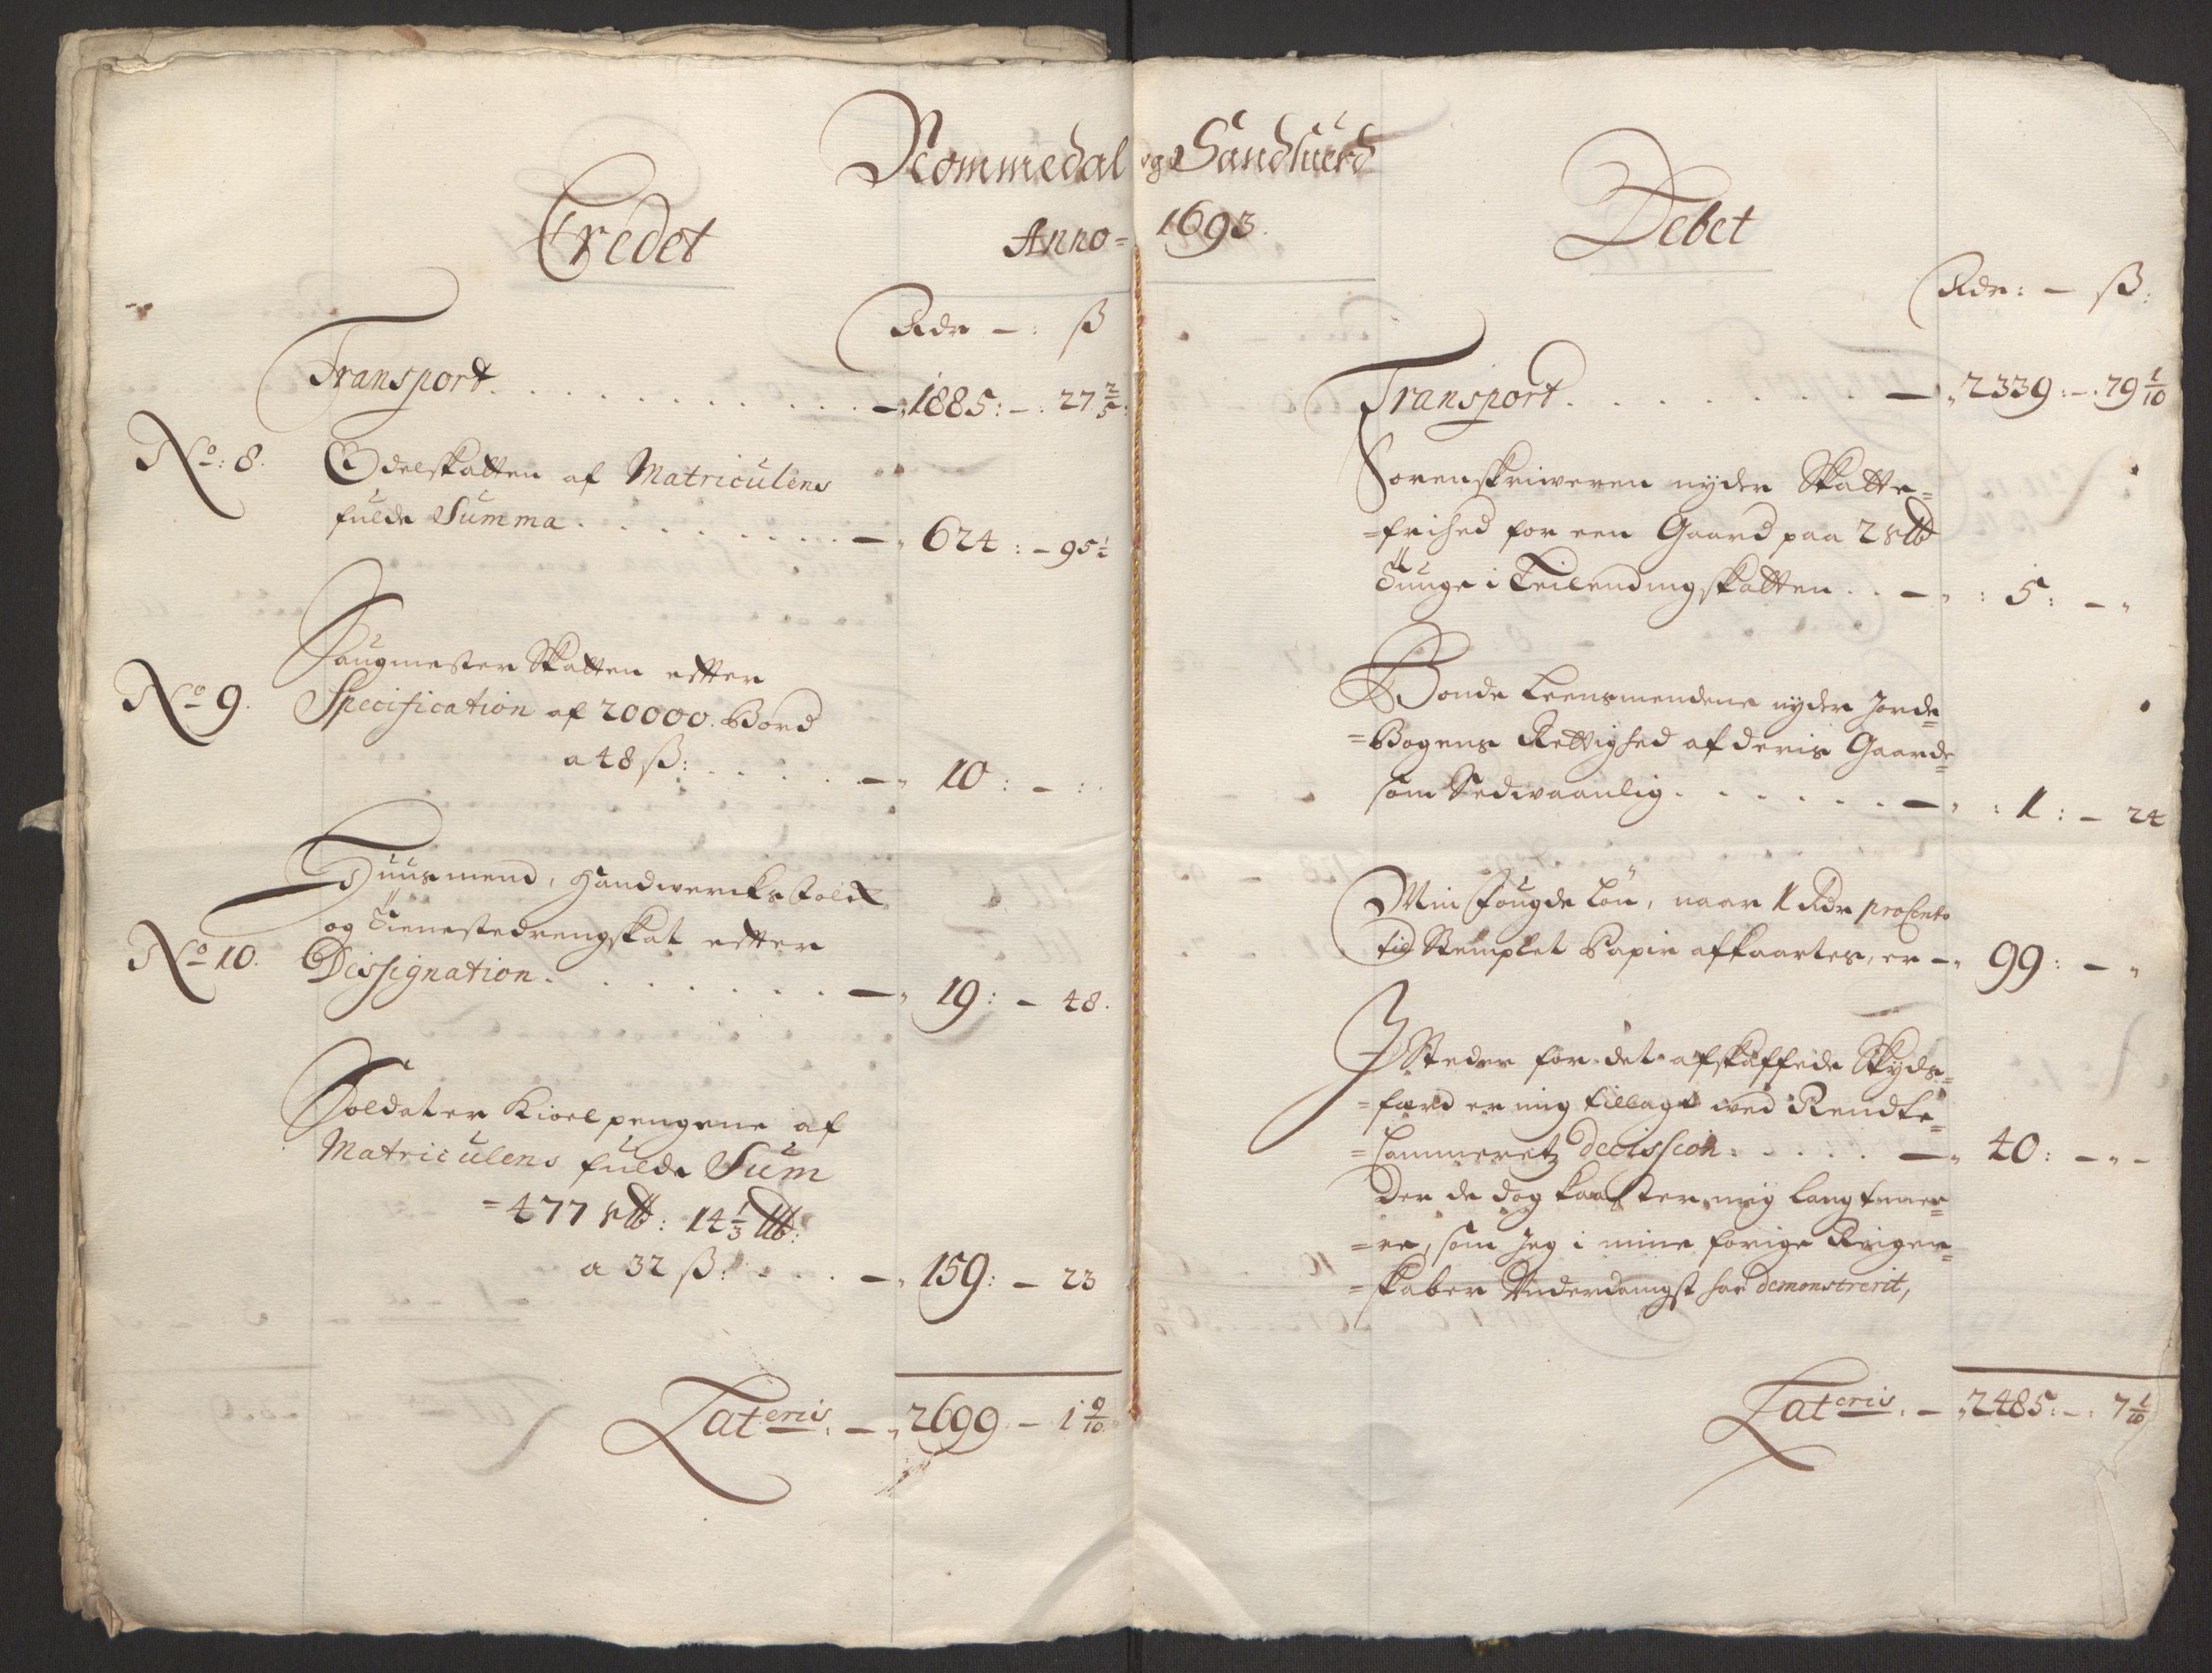 Nommedal og Sandsuerd
Anno= 1693.
Credet
Rdr -: ß
Transport . . . . . . . . . . . . 1885: -: 27 2/5:
No: 8. Odelskatten af Matriculens
fulde Summa . . . . . . . . 624: - 95 1/2
No 9. Saugmester Skatten efter
Specification af 20000. Bord
a 48 ß: . . . . . 10: - :
Huusmend, Handwercks folck
og Tienestedrengskat efter
No 10. Dessignation . . . . . . . . 19: - 48.
Soldater Kioelpengene af
Matriculens fulde Sum
=477 rlb: 14 1/3 lb:
a 32 ß: . . . . 159: - 23
Lateris: - 2699 - 1 9/10
Debet
Rdr: - ß:
Transport . . . . . . . . 2339: -: 79 1/10
Sorenskriweren nyder Skatte=
=frihed for een Gaard paa 2 rlb
Tunge i Leilendingskatten . . : 5: - "
Bonde Leensmendene nyder Jorde=
=Bogens Rettighed af deris Gaarde=
som Sedwaanlig . . . . . . : 1: - 24
Min fougde Lön, naar 1 Rdr pro Cento
til Stemplet Papir afkaartes, er - 99: - "
J Steder for det afskaffede Skyds=
=færd er mig tillagt wed Rendte=
=Cammeretz decission: . . . . 40: - " -
Der de dog kaaster mig langt mee=
=re, som Jeg i mine forige Reigen=
=skaber Underdanigst har demonstrerit,
Lateris: - 2485: -: 7 1/10